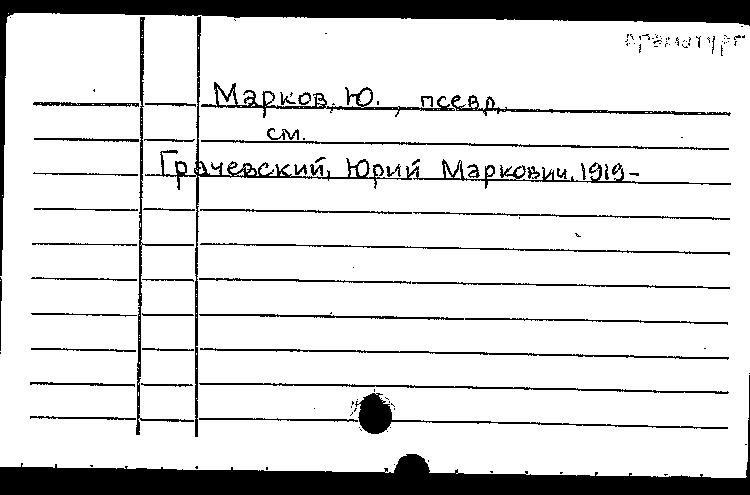 драматург
Марков, Ю., псевд.
см.
Грачевский, Юрий Маркович. 1919-